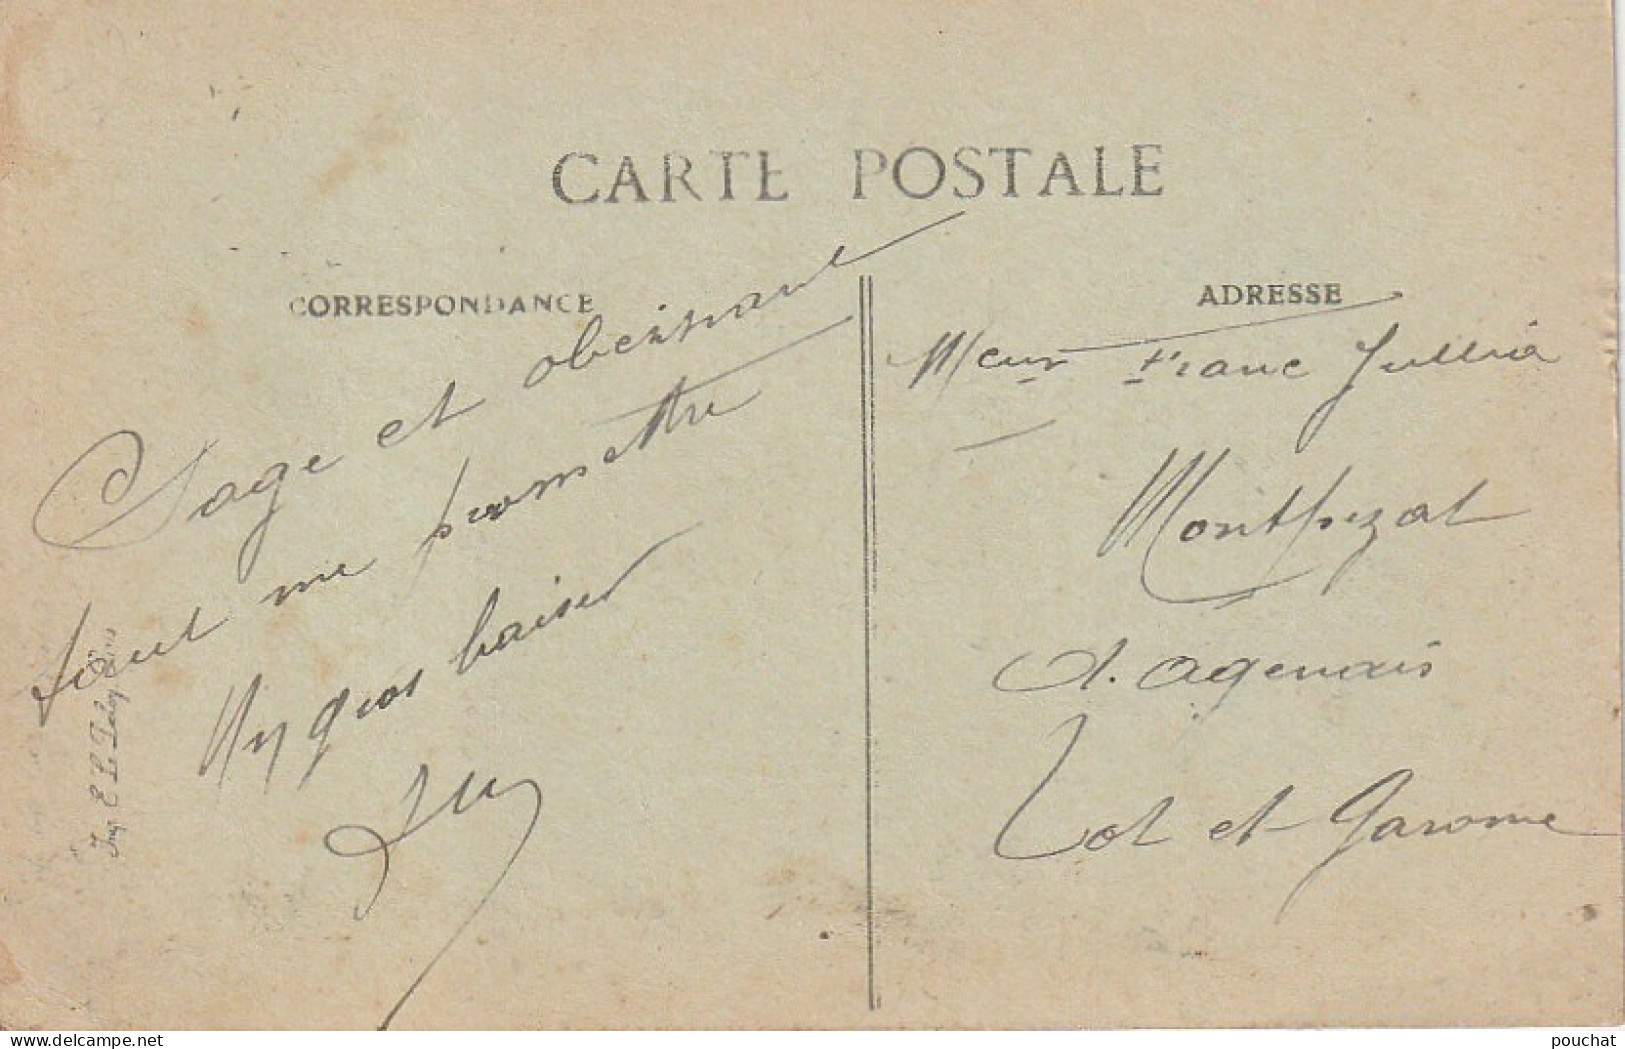 CARTE POSTALE
CORRESPONDANCE
Sage et obeissant
faut me promettre
Un gros baiser
Imp. E. Le Deley Paris
ADRESSE
Meur Franc
Montpezat
d. agenais
Lot et Garonne
delcampe.net
pouchat